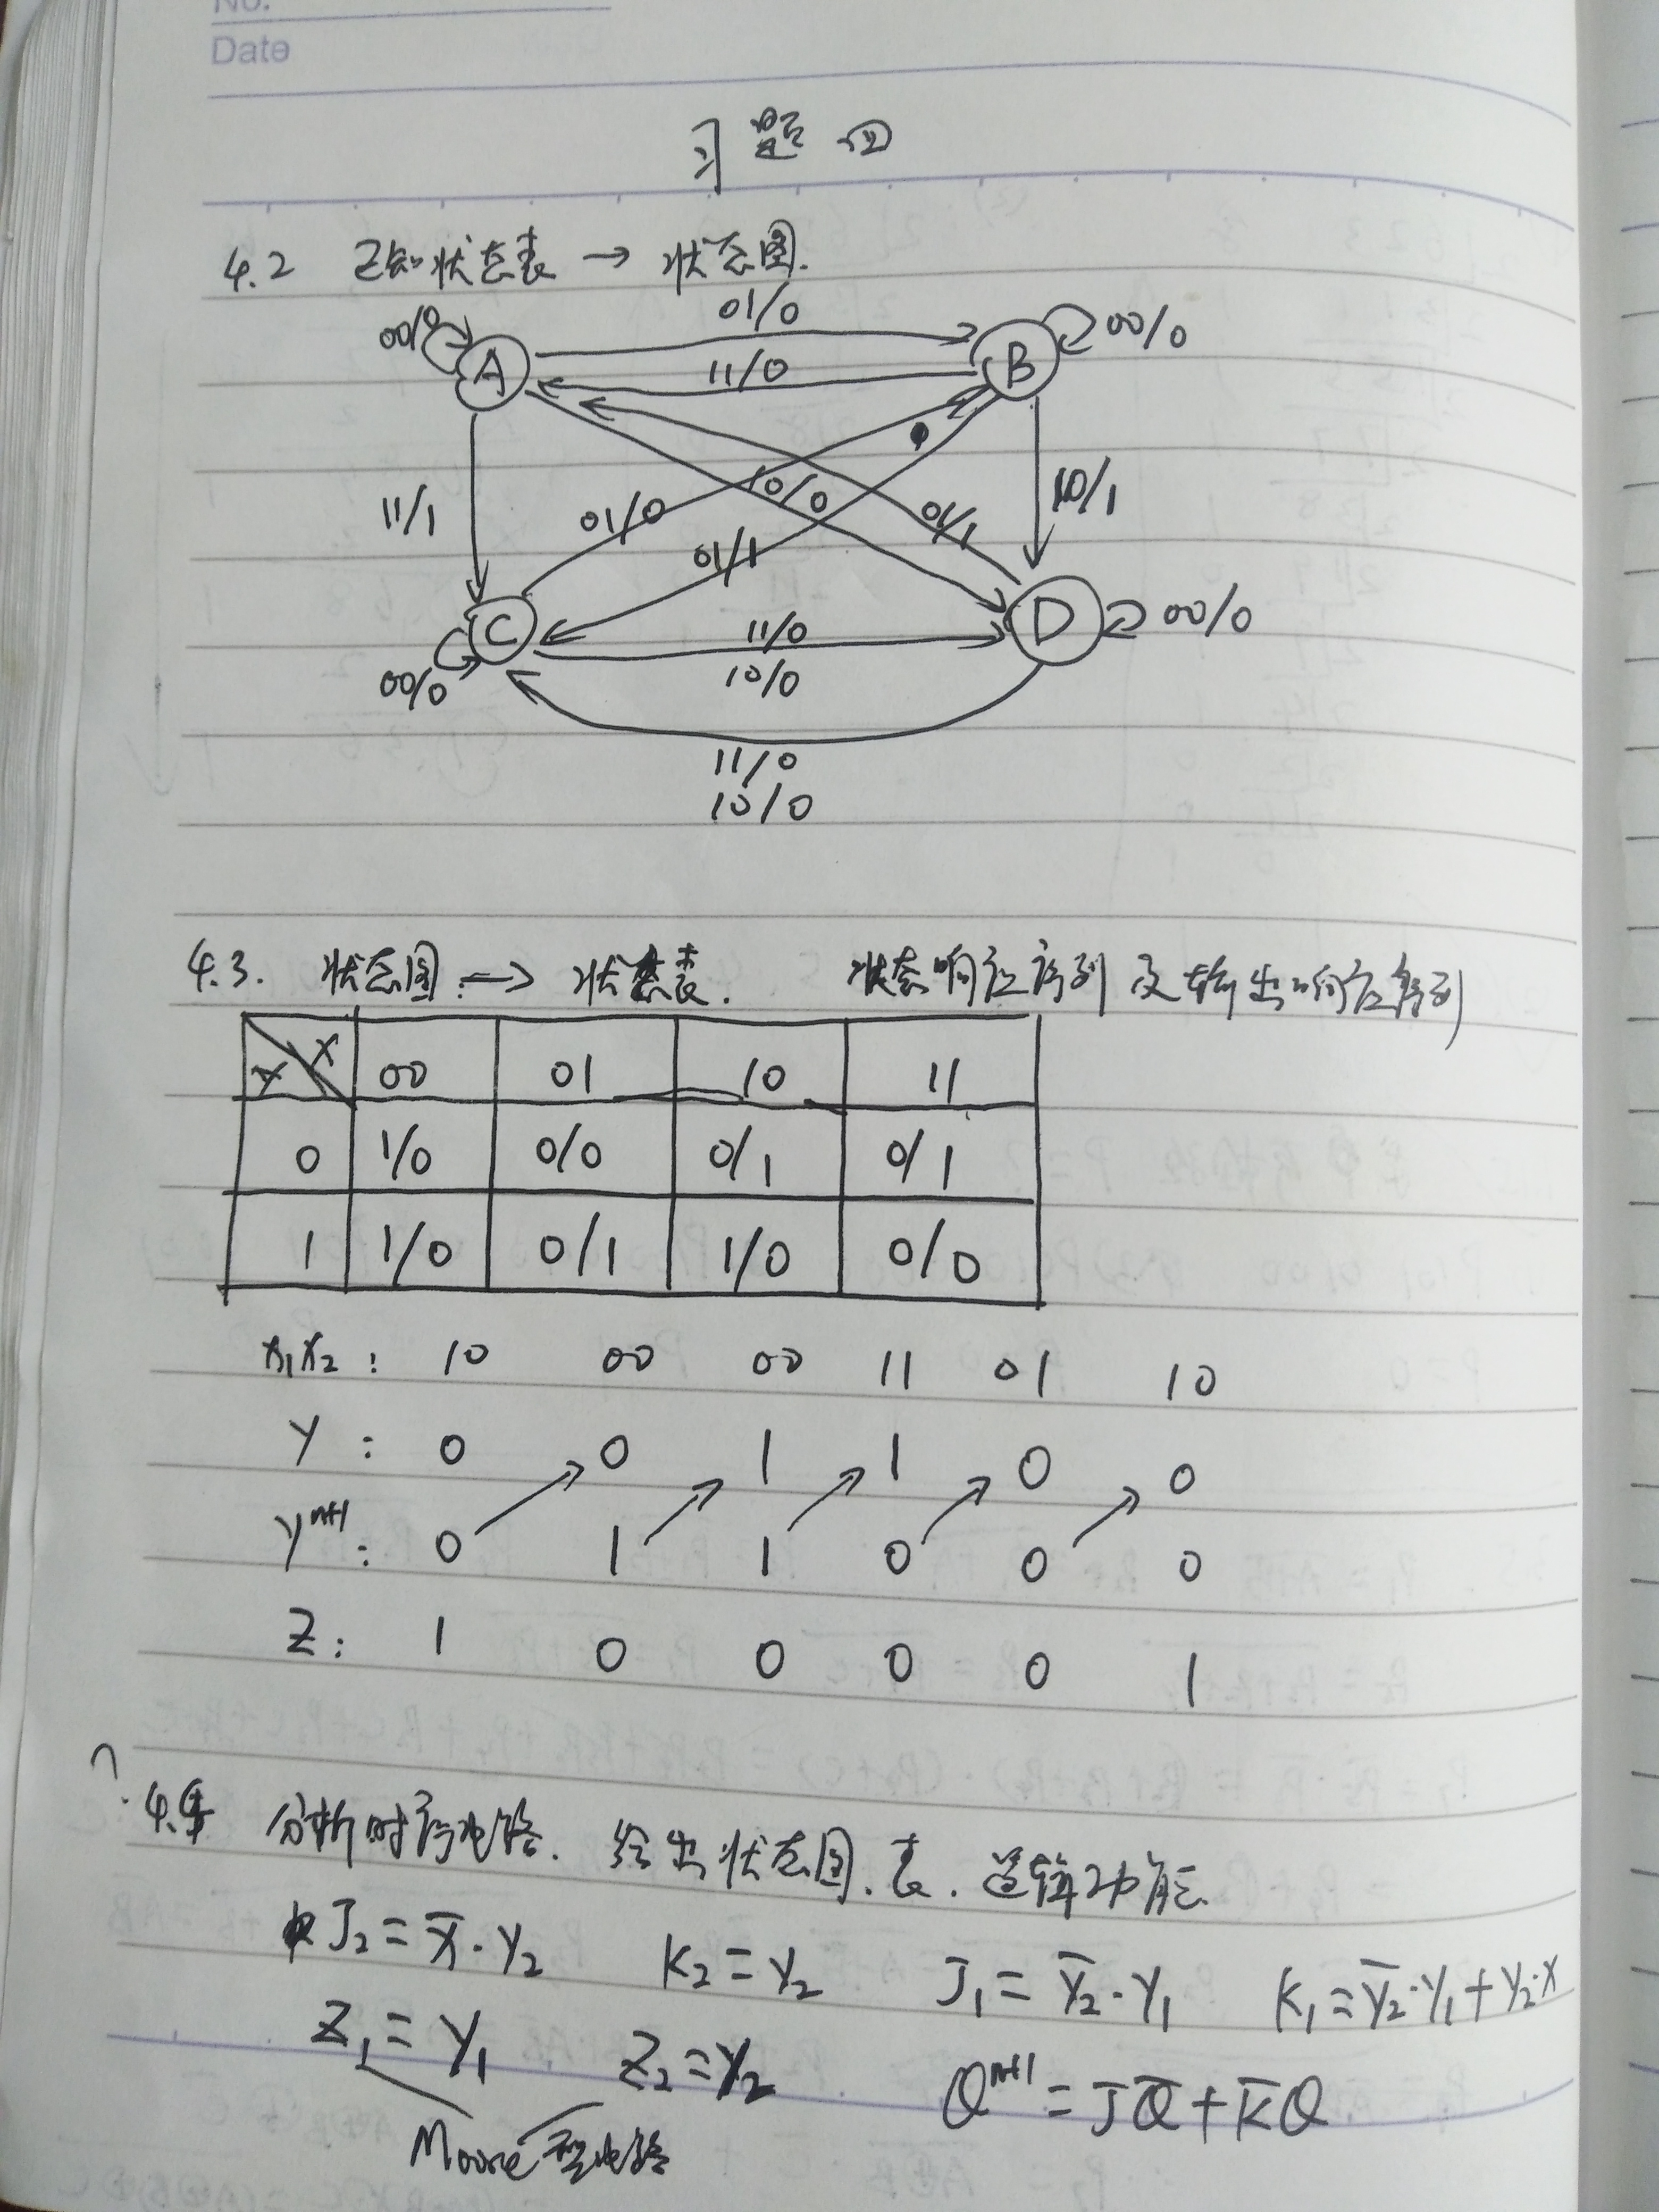 No.
Date
习题四
4.2 已知状态表 → 状态图.
00/0 A 01/0 B 00/0
11/0
11/1 01/0 10/0 01/1 10/1
01/1
C 11/0 D 00/0
00/0 10/0
11/0
10/0
4.3. 状态图 → 状态表. 状态响应序列及输出响应序列
Y X 00 01 10 11
0 1/0 0/0 0/1 0/1
1 1/0 0/1 1/0 0/0
X₁X₂: 10 00 00 11 01 10
Y: 0 0 1 1 0 0
Yⁿ⁺¹: 0 1 1 0 0 0
Z: 1 0 0 0 0 1
? 4.4 分析时序电路. 给出状态图.表.逻辑功能
J₂ = X̅·Y₂ K₂ = Y₂ J₁ = Y̅₂·Y₁ K₁ = Y̅₂·Y₁+Y₂·X
Z₁ = Y₁ Z₂ = Y₂ Qⁿ⁺¹ = JQ̅+K̅Q
Moore型电路